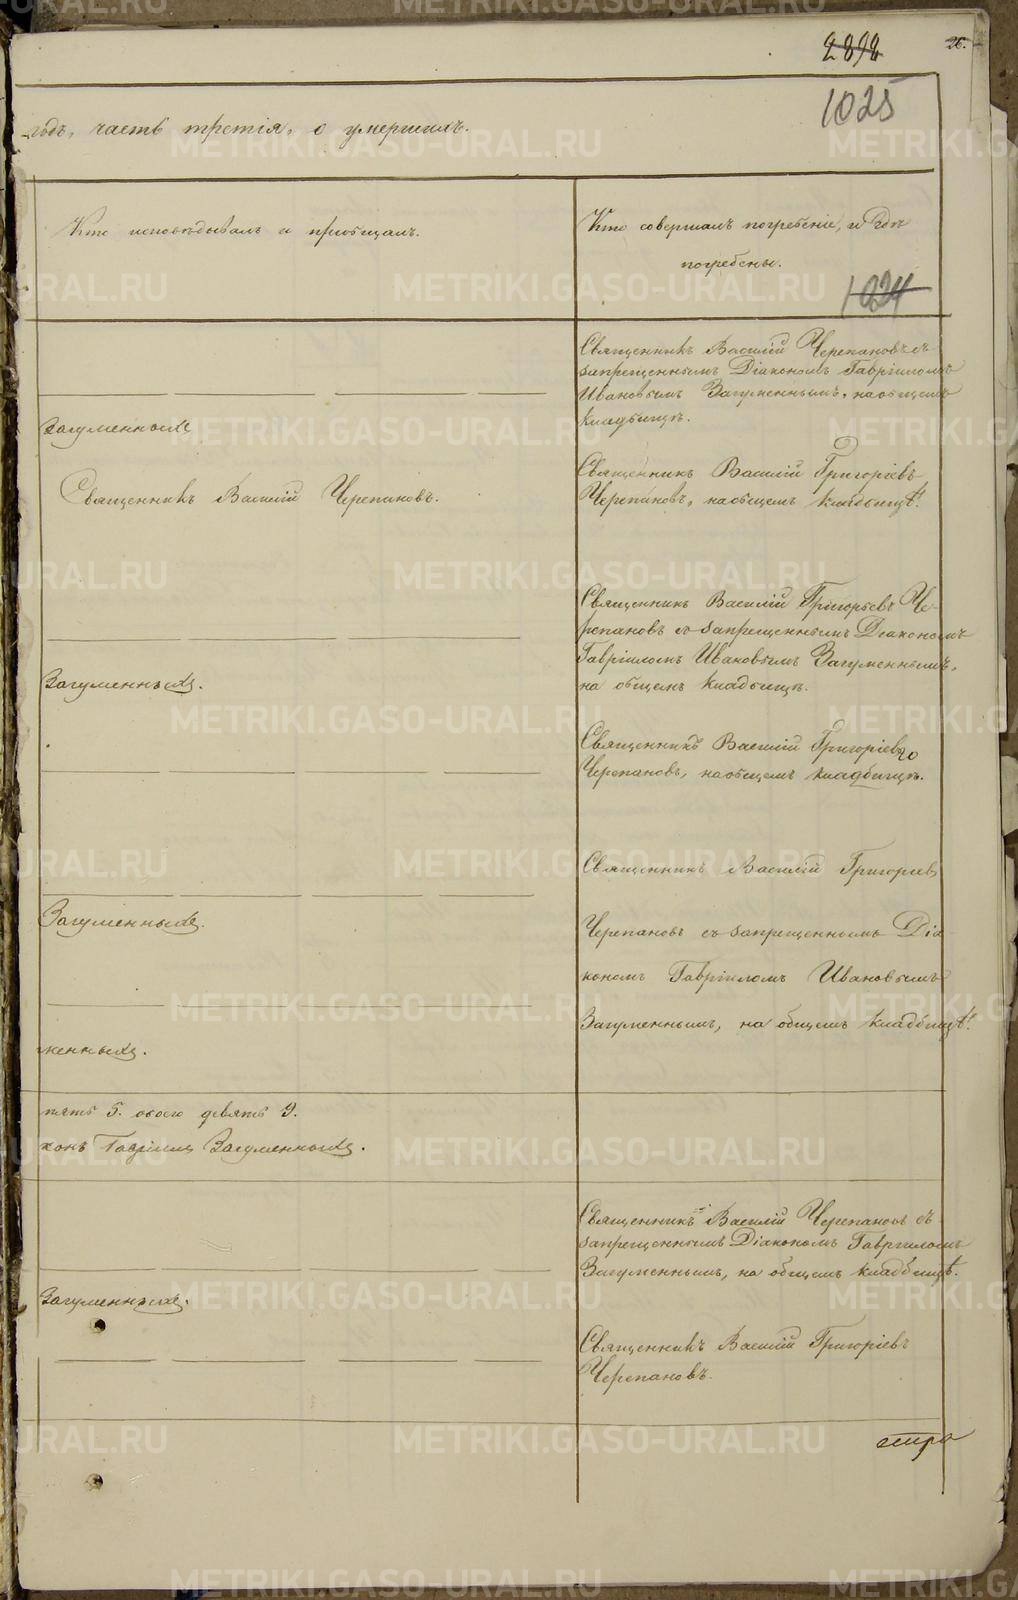 2892
26.
1025
годъ, часть третія, о умершихъ.
Кто исповѣдывалъ и пріобщалъ.
Кто совершалъ погребеніе, и гдѣ
погребены.
1024
Священникъ Василій Черепановъ съ
запрещеннымъ Діакономъ Гавріиломъ
Ивановымъ Загуменнымъ, на общемъ
кладбищѣ.
Загуменныхъ
Священникъ Василій Черепановъ.
Священникъ Василій Григоріевъ
Черепановъ, на общемъ кладбищѣ.
Священникъ Василій Григорьевъ Че-
репановъ съ запрещеннымъ Діакономъ
Гавріиломъ Ивановымъ Загуменнымъ,
на общемъ кладбищѣ.
Загуменныхъ.
Священникъ Василій Григоріевъ
Черепановъ, на общемъ кладбищѣ.
Священникъ Василій Григорьевъ
Загуменныхъ.
Черепановъ съ запрещеннымъ Діа-
кономъ Гавріиломъ Ивановымъ
Загуменнымъ, на общемъ кладбищѣ.
менныхъ.
пять 5. обоего девять 9.
конъ Гавріилъ Загуменныхъ.
Священникъ Василій Черепановъ съ
запрещеннымъ Діакономъ Гавріиломъ
Загуменнымъ, на общемъ кладбищѣ.
Загуменныхъ.
Священникъ Василій Григоріевъ
Черепановъ.
METRIKI.GASO-URAL.RU